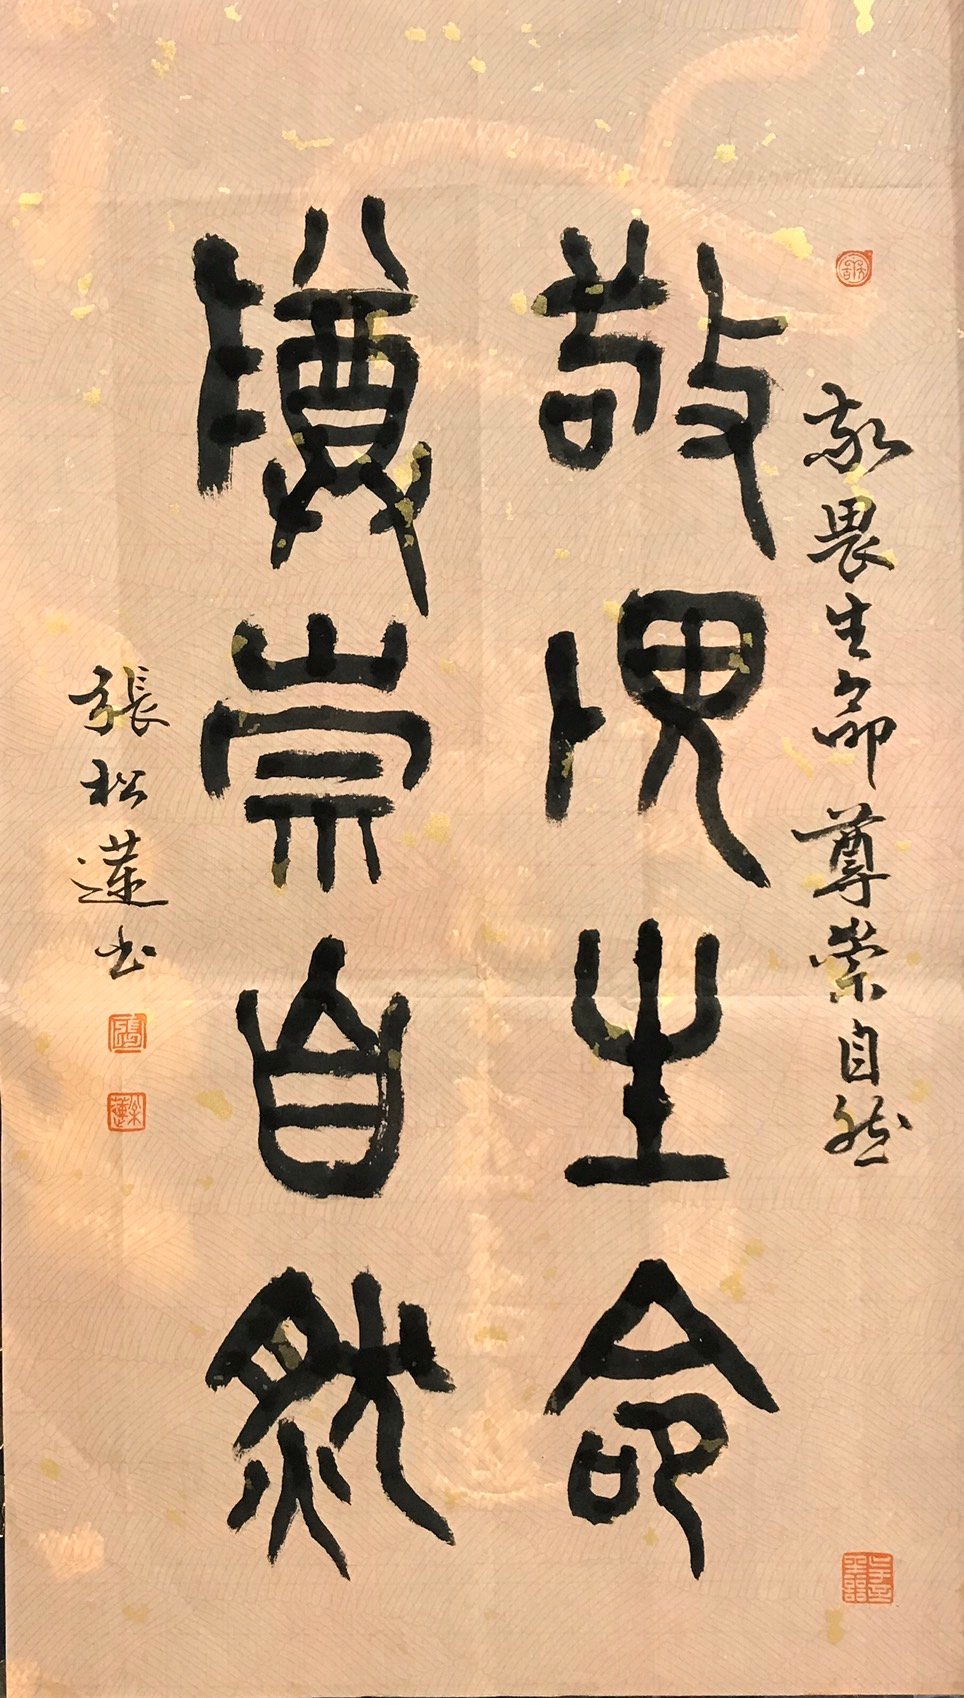 敬畏生命
尊崇自然
敬畏生命尊崇自然
張松蓮书